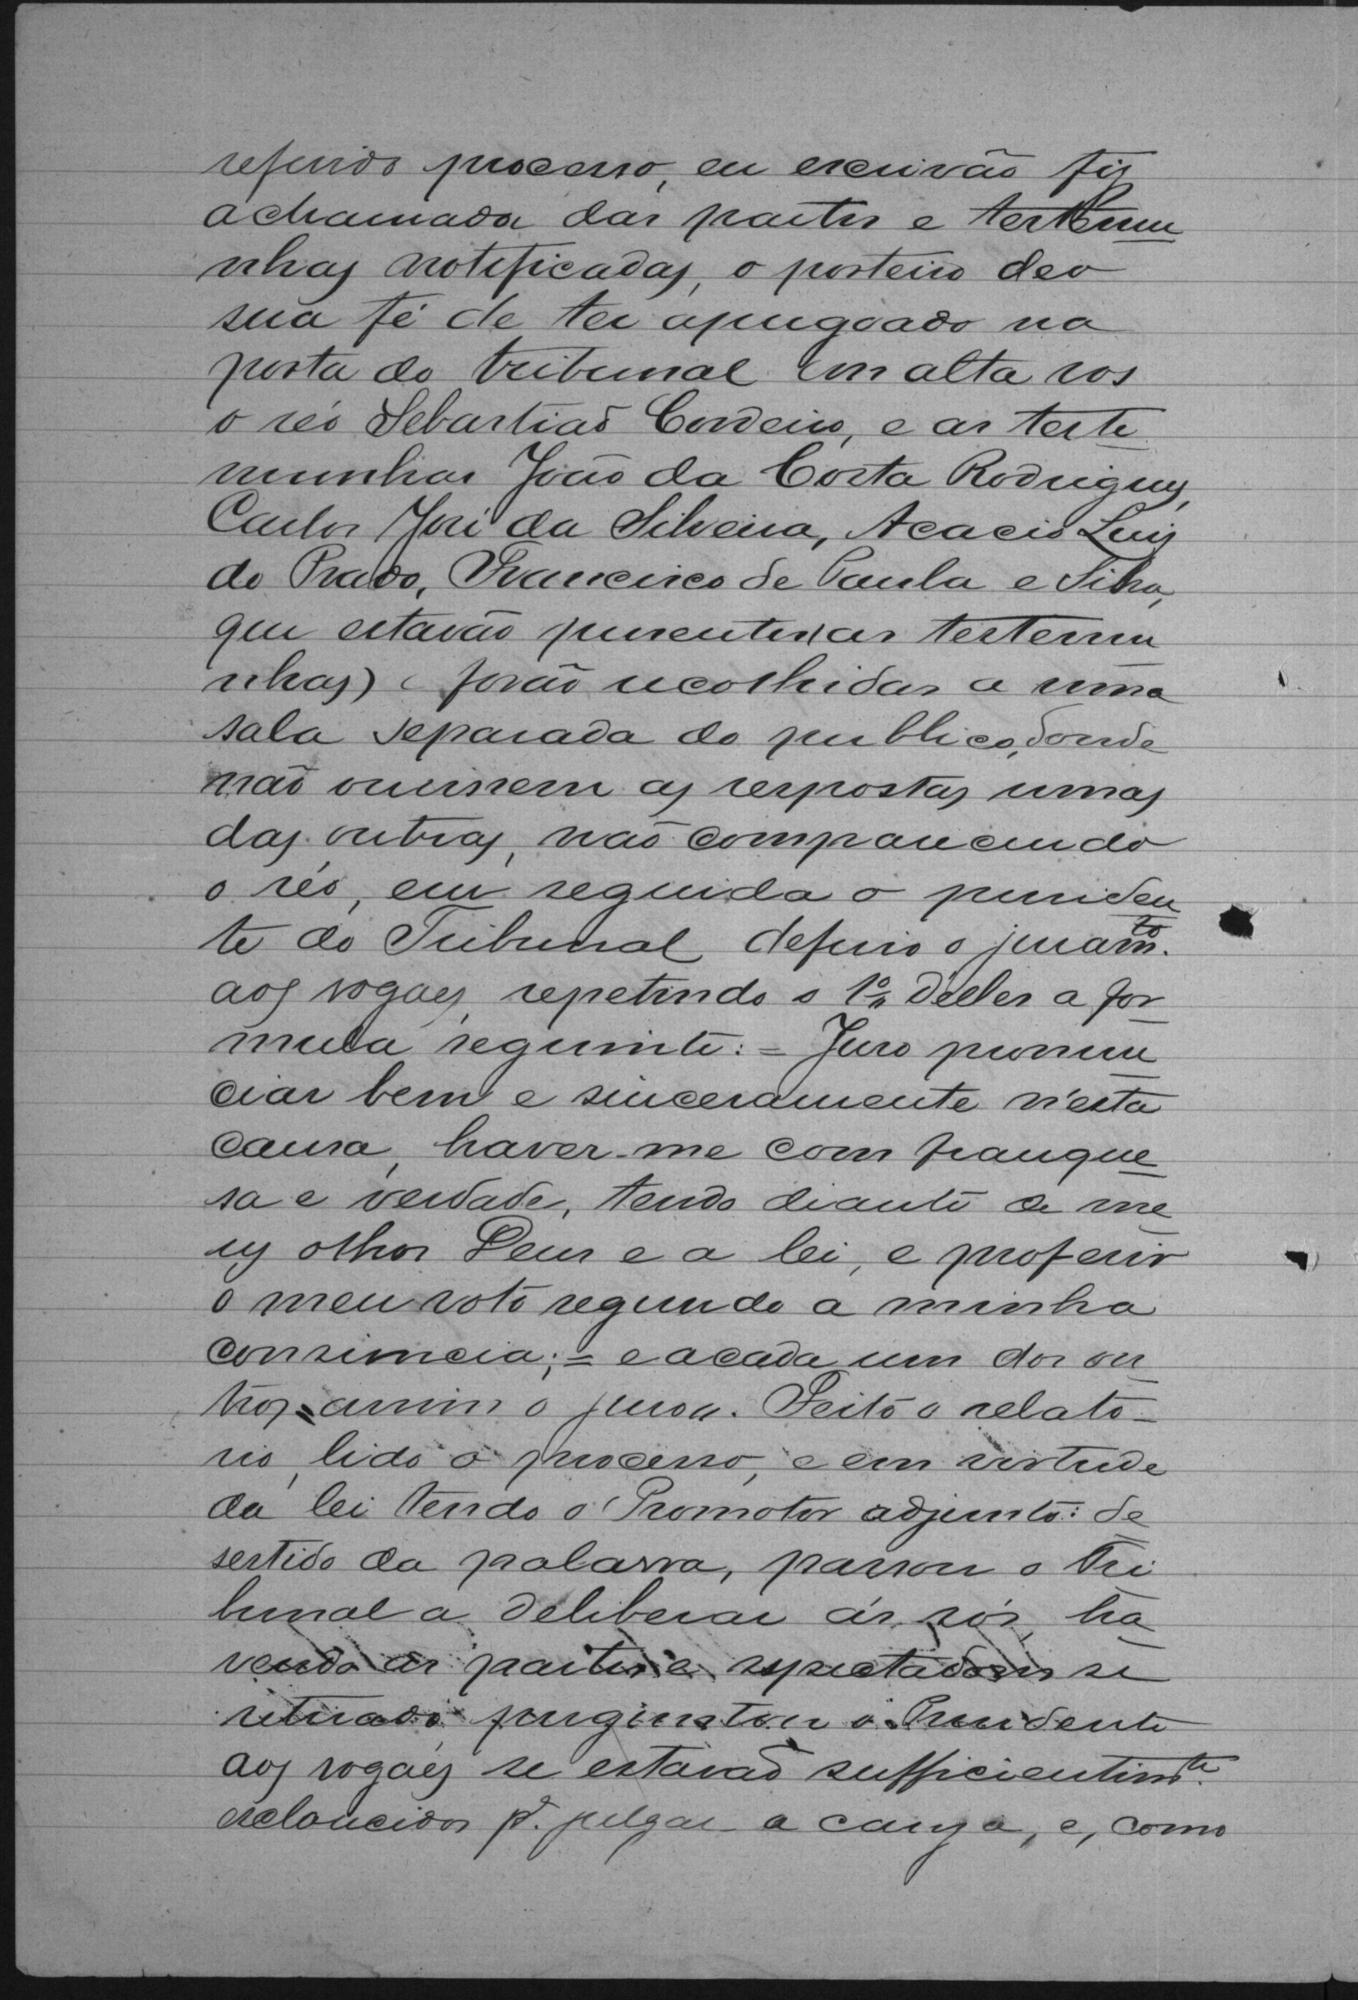 referido processo, eu escrivão fiz
a chamada das partes e testemu
nhas notificadas, o porteiro deo
sua fé de ter apregoado na
porta do tribunal em alta vos
o réo Sebastião Cordeiro, e as teste
munhas João da Costa Rodrigues,
Carlos José da Silveira, Acacio Luiz
do Prado, Francisco de Paula e Silva,
que estavão presentes (as testemu
nhas) forão recolhidas a uma
sala separada do publico, donde
não ouvissem as respostas umas
das outras, não comparecendo
o réo, em seguida o presiden
te do Tribunal deferio o juram.to
aos vogaes, repetindo o 1º d'elles a for
mula seguinte: = Juro pronun
ciar bem e sinceramente n'esta
causa, haver-me com franque
sa e verdade, tendo diante de me
us olhos Deus e a lei, e proferir
o meu voto segundo a minha
consciencia; = e a cada um dos ou
tros = assim o juro". Feito o relato-
rio, lido o processo, e em virtude
da lei tendo o Promotor adjunto: de
sestido da palavra, passou o Tri
bunal a deliberar ás sós, ha
vendo as partes e espectadores se
retirado, perguntou o Presidente
aos vogaes se estavão sufficientim.te
esclarecidos p.ª julgar a causa, e, como